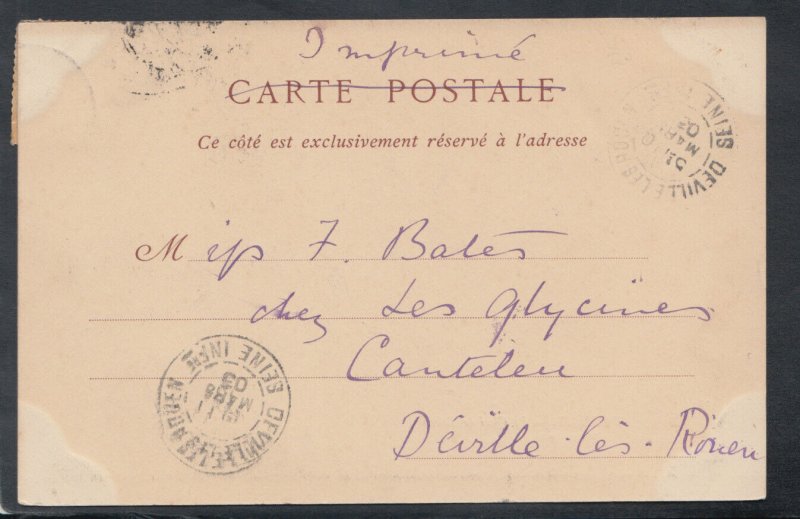 Imprimé
CARTE POSTALE
Ce côté est exclusivement réservé à l'adresse
Miss F. Bates
chez Les Glycines
Canteleu
Déville-lès-Rouen
DEVILLE LES ROUEN
SEINE
MARS
DEVILLE LES ROUEN
SEINE INFRE
MARS
03